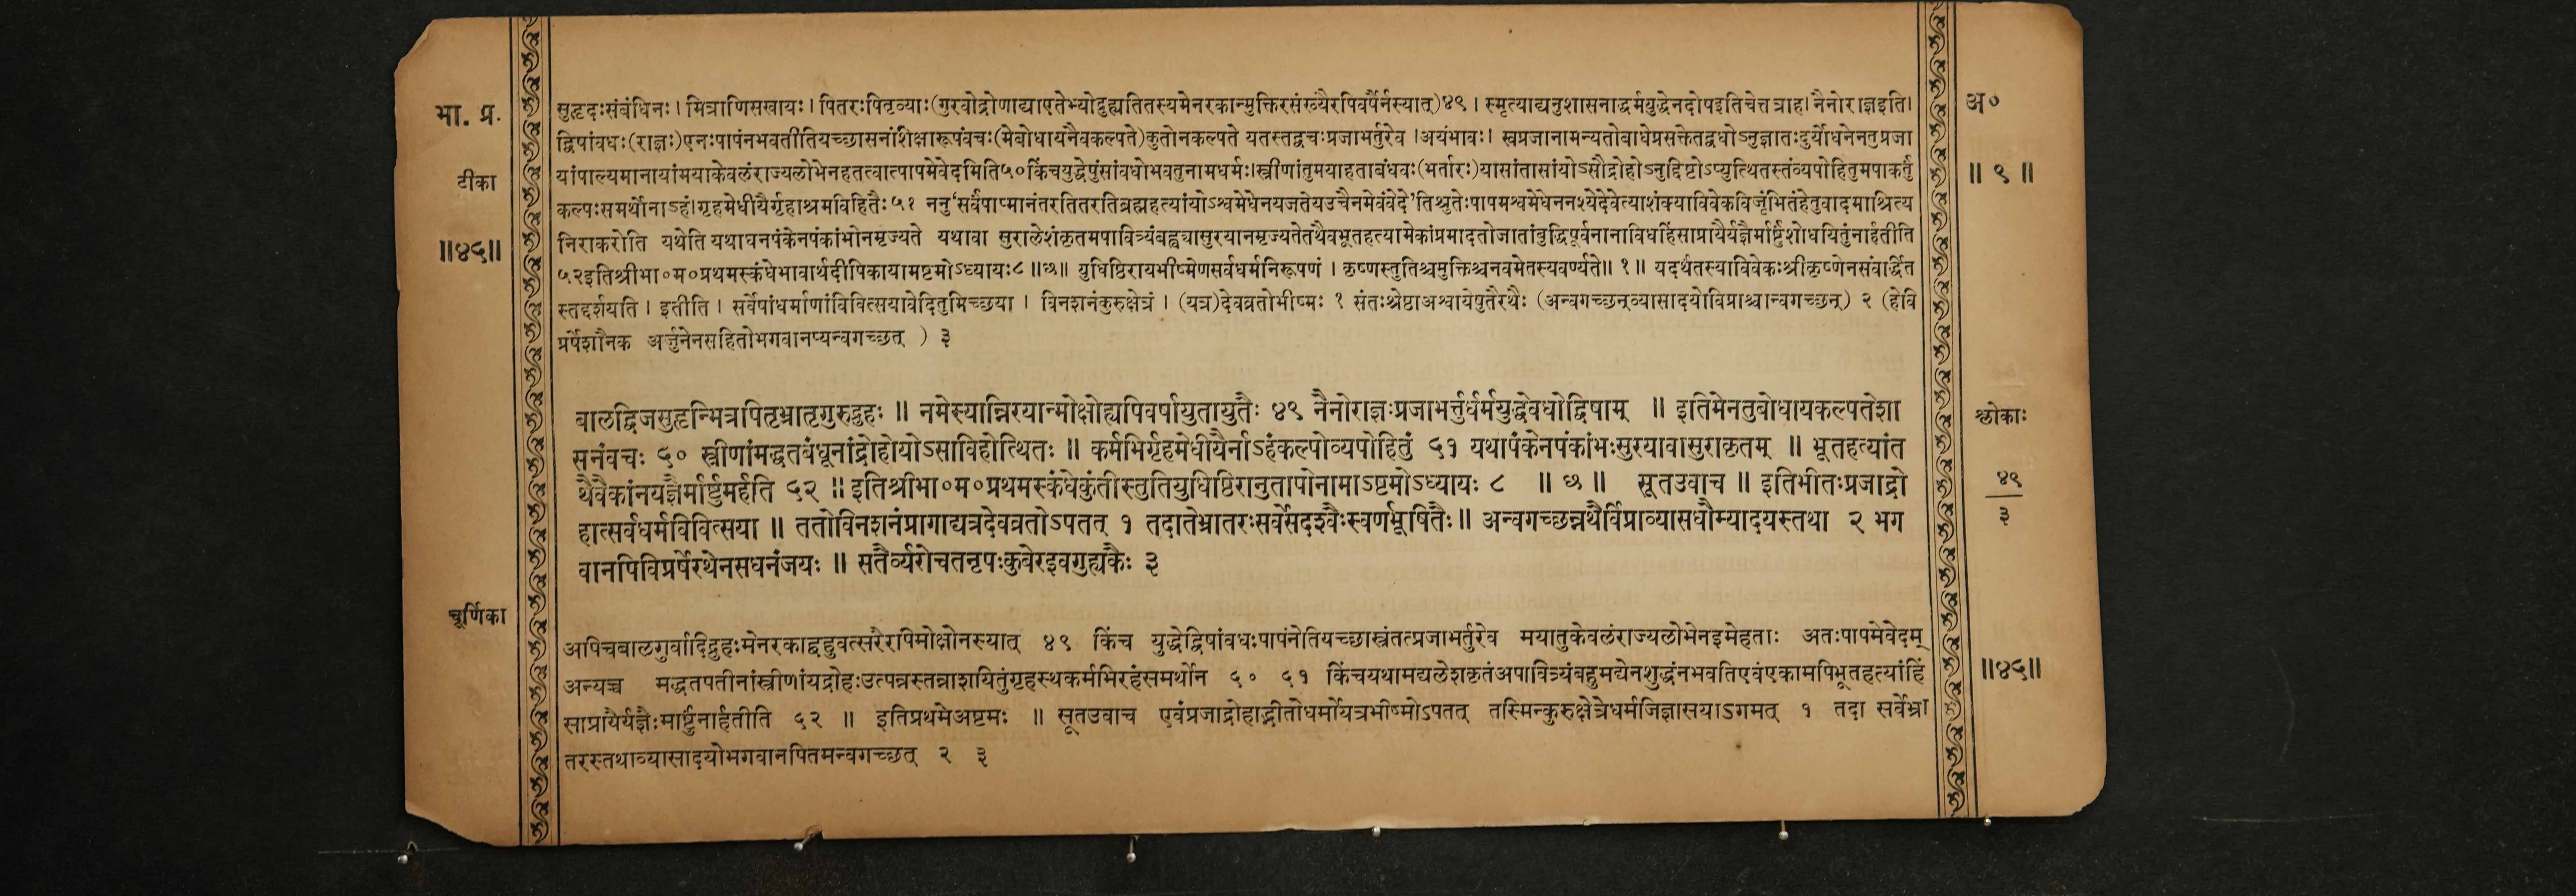 भा. प्र.
टीका
॥४६॥
चूर्णिका
सुहृदःसंबंधिनः। मित्राणिसखायः। पितरःपितृव्याः(गुरवोद्रोणाद्याएतेभ्योद्रुह्यतितस्यमेनरकान्मुक्तिरसंख्यैरपिवर्षैर्नस्यात्)४९ । स्मृत्याद्यनुशासनाद्धर्मयुद्धेनदोषइतिचेत्तत्राह। नैनोराज्ञइति।
द्विषांवधः(राज्ञः)एनःपापंनभवतीतियच्छासनांशिक्षारूपंवचः(मेबोधायनैवकल्पते)कुतोनकल्पते यतस्तद्वचःप्रजाभर्तुरेव ।अयंभावः। स्वप्रजानामन्यतोबाधेप्रसक्तेतद्वधोऽनुज्ञातःदुर्योधनेनतुप्रजा
यांपाल्यमानायांमयाकेवलंराज्यलोभेनहतत्वात्पापमेवेदमिति५०किंचयुद्धेपुंसांवधोभवतुनामधर्मः।स्त्रीणांतुमयाहताबंधवः(भर्तारः)यासांतासांयोऽसौद्रोहोऽनुद्दिष्टोऽप्युत्थितस्तंव्यपोहितुमपाकर्तुं
कल्पःसमर्थोनाऽहं।गृहमेधीयैर्गृहाश्रमविहितैः५१ ननु‘सर्वंपाप्मानंतरतितरतिब्रह्महत्यांयोऽश्वमेधेनयजतेयउचैनमेवंवेदे’तिश्रुतेःपापमश्वमेधेननश्येदेवेत्याशंक्याविवेकविजृंभितंहेतुवादमाश्रित्य
निराकरोति यथेति यथाघनपंकेनपंकांभोनमृज्यते यथावा सुरालेशंकृतमपावित्र्यंबह्व्यासुरयानमृज्यतेतथैवभूतहत्यामेकांप्रमादतोजातांबुद्धिपूर्वनानाविधहिंसाप्रायैर्यज्ञैर्मार्ष्टुंशोधयितुंनार्हतीति
५२इतिश्रीभा०म०प्रथमस्कंधेभावार्थदीपिकायामष्टमोऽध्यायः८॥छ॥ युधिष्ठिरायभीष्मेणसर्वधर्मनिरूपणं । कृष्णस्तुतिश्चमुक्तिश्चनवमेतस्यवर्ण्यते॥ १॥ यदर्थंतस्याविवेकःश्रीकृष्णेनसंवार्द्धित
स्तद्दर्शयति । इतीति । सर्वेषांधर्माणांविवित्सयावेदितुमिच्छया । विनशनंकुरुक्षेत्रं । (यत्र)देवव्रतोभीष्मः १ संतःश्रेष्ठाअश्वायेषुतैरथैः (अन्वगच्छन्व्यासादयोविप्राश्चान्वगच्छन्) २ (हेवि
प्रर्षेशौनक अर्जुनेनसहितोभगवानप्यन्वगच्छत् ) ३
बालद्विजसुहृन्मित्रपितृभ्रातृगुरुद्रुहः ॥ नमेस्यान्निरयान्मोक्षोह्यपिवर्षायुतायुतैः ४९ नैनोराज्ञःप्रजाभर्त्तुर्धर्मयुद्धेवधोद्विषाम् ॥ इतिमेनतुबोधायकल्पतेशा
सनंवचः ५० स्त्रीणांमद्धतबंधूनांद्रोहोयोऽसाविहोत्थितः ॥ कर्मभिर्गृहमेधीयैर्नाऽहंकल्पोव्यपोहितुं ५१ यथापंकेनपंकांभःसुरयावासुराकृतम् ॥ भूतहत्यांत
थैवैकांनयज्ञैर्मार्ष्टुमर्हति ५२ ॥ इतिश्रीभा०म०प्रथमस्कंधेकुंतीस्तुतियुधिष्ठिरानुतापोनामाऽष्टमोऽध्यायः ८ ॥ छ ॥ सूतउवाच ॥ इतिभीतःप्रजाद्रो
हात्सर्वधर्मविवित्सया ॥ ततोविनशनंप्रागाद्यत्रदेवव्रतोऽपतत् १ तदातेभ्रातरःसर्वेसदश्वैःस्वर्णभूषितैः॥ अन्वगच्छन्रथैर्विप्राव्यासधौम्यादयस्तथा २ भग
वानपिविप्रर्षेरथेनसधनंजयः ॥ सतैर्व्यरोचतनृपःकुबेरइवगुह्यकैः ३
अपिचबालगुर्वादिद्रुहःमेनरकाद्बहुवत्सरैरपिमोक्षोनस्यात् ४९ किंच युद्धेद्विषांवधःपापंनेतियच्छास्त्रंतत्प्रजाभर्तुरेव मयातुकेवलंराज्यलोभेनइमेहताः अतःपापमेवेदम्
अन्यच्च मद्धतपतीनांस्त्रीणांयद्रोहःउत्पन्नस्तन्नाशयितुंगृहस्थकर्मभिरहंसमर्थोन ५० ५१ किंचयथामद्यलेशकृतंअपावित्र्यंबहुमद्येनशुद्धंनभवतिएवंएकामपिभूतहत्यांहिं
साप्रायैर्यज्ञैःमार्ष्टुंनार्हतीति ५२ ॥ इतिप्रथमेअष्टमः ॥ सूतउवाच एवंप्रजाद्रोहाद्भीतोधर्मोयत्रभीष्मोऽपतत् तस्मिन्कुरुक्षेत्रेधर्मजिज्ञासयाऽगमत् १ तदा सर्वेभ्रा
तरस्तथाव्यासादयोभगवानपितमन्वगच्छत् २ ३
अ०
॥ ९ ॥
श्लोकाः
४९
३
॥४६॥